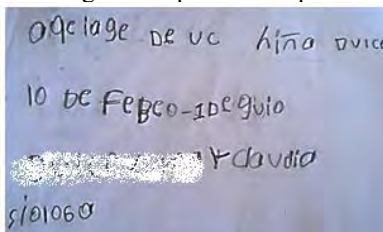 ogclage De uc hiña Dvice
10 De FeBco-IDeguio
Y claudia
siolo6a